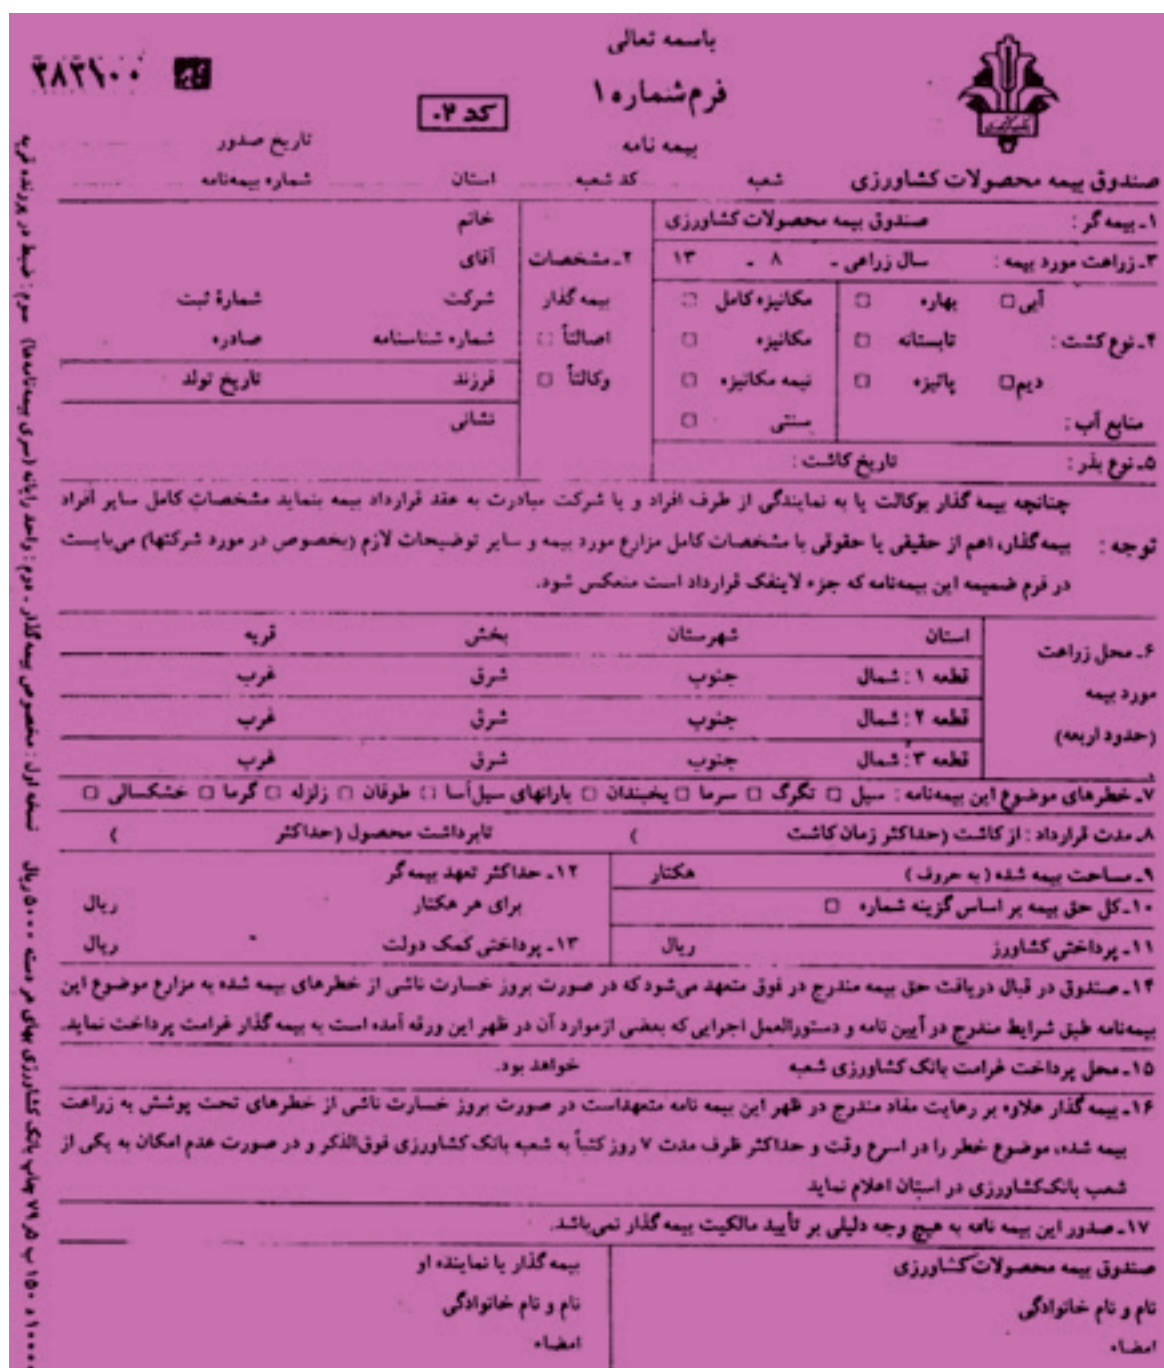 باسمه تعالی
۲۸۲۹۰۰
فرم‌شماره ۱
کد ۰۲
بیمه نامه
تاریخ صدور
صندوق بیمه محصولات کشاورزی شعبه کد شعبه استان شماره بیمه‌نامه
۱ـ بیمه گر : صندوق بیمه محصولات کشاورزی
خانم
۳ـ زراعت مورد بیمه : سال زراعی ـ ۸ ـ ۱۳
۲ـ مشخصات آقای
آبی □ بهاره □ مکانیزه کامل □
بیمه گذار شرکت شمارهٔ ثبت
۴ـ نوع کشت : تابستانه □ مکانیزه □
اصالتاً □ شماره شناسنامه صادره
دیم □ پائیزه □ نیمه مکانیزه □
وکالتاً □ فرزند تاریخ تولد
منابع آب : سنتی □
نشانی
۵ـ نوع بذر : تاریخ کاشت :
چنانچه بیمه گذار بوکالت یا به نمایندگی از طرف افراد و یا شرکت مبادرت به عقد قرارداد بیمه بنماید مشخصات کامل سایر افراد
توجه : بیمه گذار، اهم از حقیقی یا حقوقی با مشخصات کامل مزارع مورد بیمه و سایر توضیحات لازم (بخصوص در مورد شرکتها) می‌بایست
در فرم ضمیمه این بیمه‌نامه که جزء لاینفک قرارداد است منعکس شود.
۶ـ محل زراعت استان شهرستان بخش قریه
قطعه ۱ : شمال جنوب شرق غرب
مورد بیمه
قطعه ۲ : شمال جنوب شرق غرب
(حدود اربعه)
قطعه ۳ : شمال جنوب شرق غرب
۷ـ خطرهای موضوع این بیمه‌نامه : سیل □ تگرگ □ سرما □ یخبندان □ بارانهای سیل‌آسا □ طوفان □ زلزله □ گرما □ خشکسالی □
۸ـ مدت قرارداد : از کاشت (حداکثر زمان کاشت ) تابرداشت محصول (حداکثر )
۹ـ مساحت بیمه شده ( به حروف ) هکتار
۱۰ـ کل حق بیمه بر اساس گزینه شماره □
۱۱ـ پرداختی کشاورز ریال
۱۲ـ حداکثر تعهد بیمه گر
برای هر هکتار ریال
۱۳ـ پرداختی کمک دولت ریال
۱۴ـ صندوق در قبال دریافت حق بیمه مندرج در فوق متعهد می‌شود که در صورت بروز خسارت ناشی از خطرهای بیمه شده به مزارع موضوع این
بیمه‌نامه طبق شرایط مندرج در آیین نامه و دستورالعمل اجرایی که بعضی از موارد آن در ظهر این ورقه آمده است به بیمه گذار غرامت پرداخت نماید.
۱۵ـ محل پرداخت غرامت بانک کشاورزی شعبه خواهد بود.
۱۶ـ بیمه گذار علاوه بر رعایت مفاد مندرج در ظهر این بیمه نامه متعهداست در صورت بروز خسارت ناشی از خطرهای تحت پوشش به زراعت
بیمه شده، موضوع خطر را در اسرع وقت و حداکثر ظرف مدت ۷ روز کتباً به شعبه بانک کشاورزی فوق‌الذکر و در صورت عدم امکان به یکی از
شعب بانک‌کشاورزی در استان اعلام نماید
۱۷ـ صدور این بیمه نامه به هیچ وجه دلیلی بر تأیید مالکیت بیمه گذار نمی‌باشد.
صندوق بیمه محصولات کشاورزی بیمه گذار یا نماینده او
نام و نام خانوادگی نام و نام خانوادگی
امضاء امضاء
نسخه اول : مخصوص بیمه گذار ـ دوم : واحد رایانه (سری بیمه‌نامه‌ها) سوم : ضبط در پرونده قریه
۱۵۰ ب ۷۹٫۵ چاپ بانک کشاورزی بهای هر دسته ۵۰۰۰ ریال